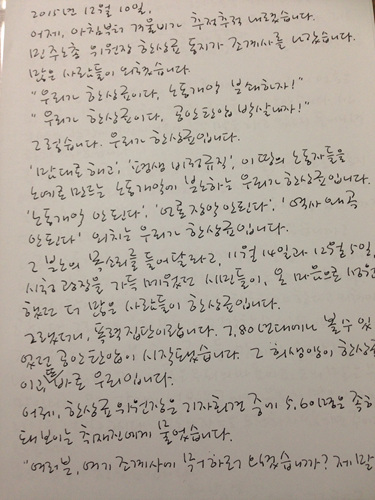 2015년 12월 10일.
어제, 아침부터 겨울비가 추적추적 내렸습니다.
민주노총 위원장 한상균 동지가 조계사를 나왔습니다.
많은 사람들이 외쳤습니다.
"우리가 한상균이다, 노동개악 분쇄하자!"
"우리가 한상균이다, 공안탄압 박살내자!"
그렇습니다. 우리가 한상균입니다.
'맘대로 해고', '평생 비정규직', 이 땅의 노동자들을
노예로 만드는 노동개악에 분노하는 우리가 한상균입니다.
'노동개악 안된다', '언론장악 안된다', '역사왜곡
안된다' 외치는 우리가 한상균입니다.
그 분노의 목소리를 들어달라고, 11월 14일과 12월 5일,
시청광장을 가득 메웠던 시민들이, 온 마음으로
했던 더 많은 사람들이 한상균입니다.
그랬더니, 폭력집단이랍니다. 7,80년대에나 볼 수 있
었던 공안탄압이 시작됐습니다. 그 희생양이 한상균
이고 똑바로 우리입니다.
어제, 한상균 위원장은 기자회견 중에 5,6명은 족히
돼보이는 취재진에게 물었습니다.
"여러분, 여기 조계사에 뭐하러 오셨습니까? 제 말